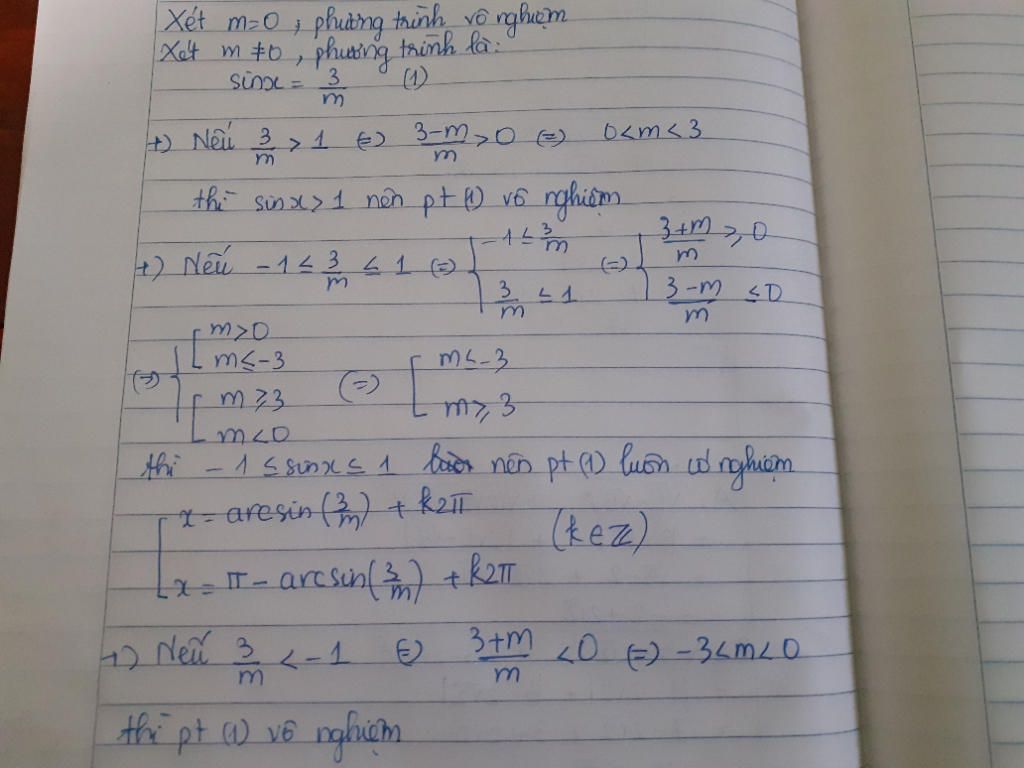 Xét m=0, phương trình vô nghiệm
Xét m ≠0, phương trình là:
sinx = 3/m (1)
+) Nếu 3/m > 1 (=) (3-m)/m > 0 (=) 0<m<3
thì sinx>1 nên pt (1) vô nghiệm
+) Nếu -1 ≤ 3/m ≤ 1 (=) { -1 ≤ 3/m ; 3/m ≤ 1 (=) { (3+m)/m ≥ 0 ; (3-m)/m ≤ 0
(=) { [ m>0 ; m≤-3 ; [ m ≥ 3 ; m<0 (=) [ m ≤ -3 ; m ≥ 3
thì -1 ≤ sinx ≤ 1 nên pt (1) luôn có nghiệm
[ x = arcsin(3/m) + k2π
(k∈Z)
x = π - arcsin(3/m) + k2π
+) Nếu 3/m < -1 (=) (3+m)/m < 0 (=) -3<m<0
thì pt (1) vô nghiệm